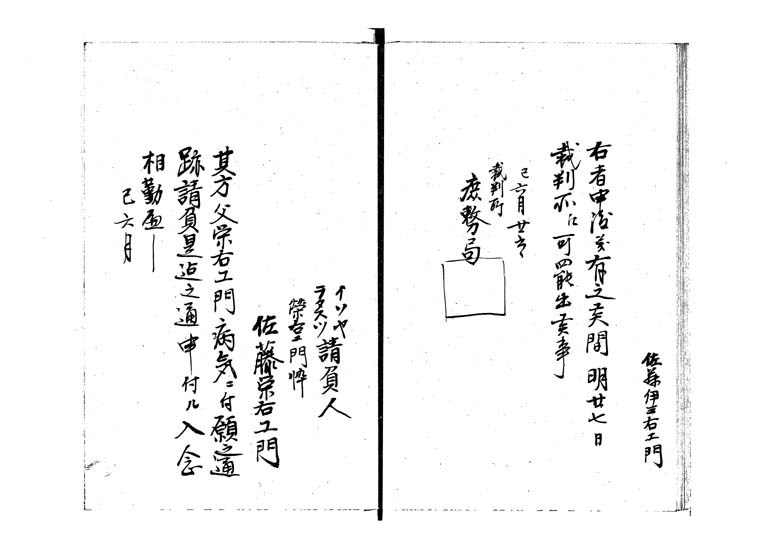 佐藤伊三右エ門
右者申渡義有之候間明廿七日
裁判所江可罷出候事
巳六月廿六日
裁判所
庶務局
イソヤ
ヲタスツ請負人
榮右エ門忰
佐藤栄右エ門
其方父栄右エ門病気ニ付願之通
跡請負是迄之通申付ル入念
相勤
巳六月